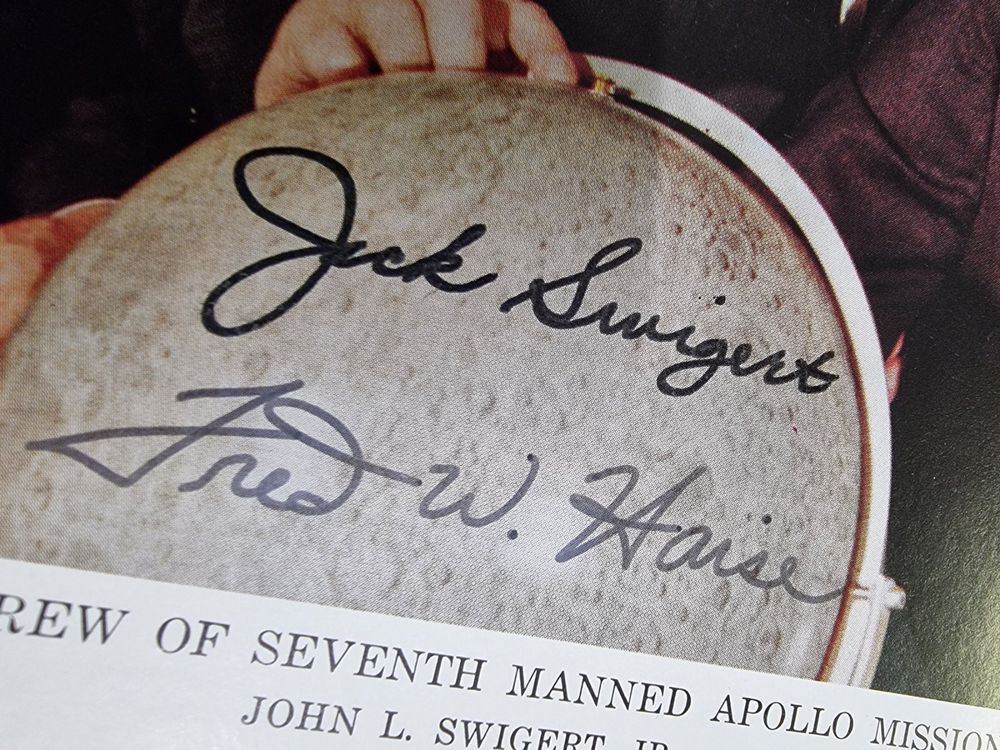 Jack Swigert
Fred W. Haise
REW OF SEVENTH MANNED APOLLO MISSION
JOHN L. SWIGERT JR